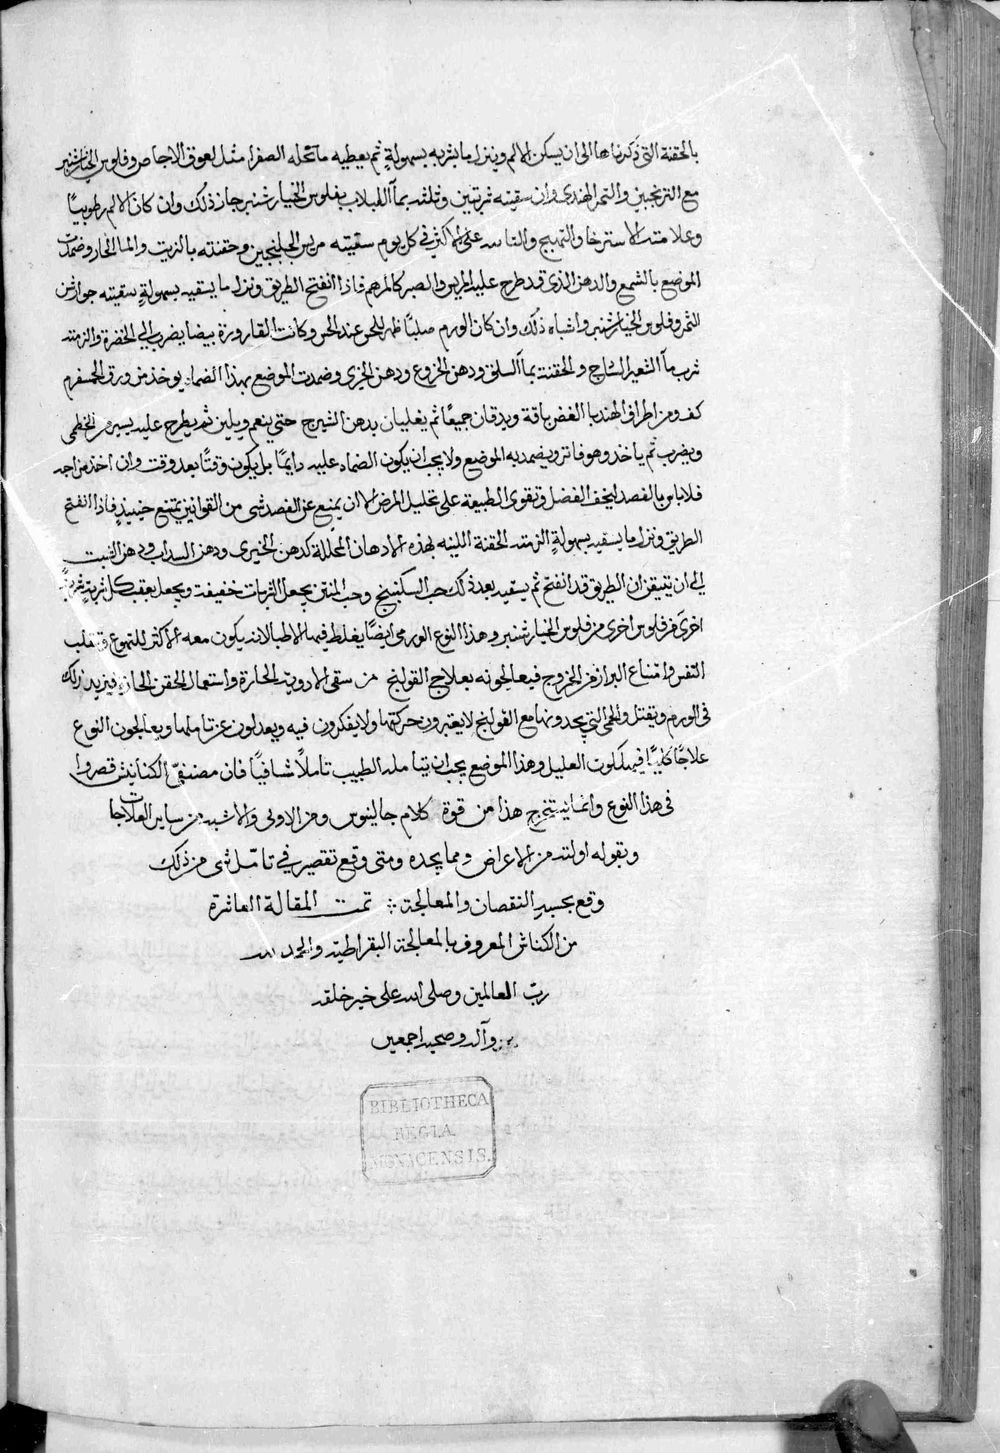 بالحقنة التى ذكرناها الى ان يسكن الالم وينزل ما يشربه بسهولةٍ ثم يعطيه ما تحله الصفرا مثل لعوق الاجاص وفلوس الخيارشنبر
مع الترنجبين والتمر الهندى وان سقيته شربتين وثلثه بما اللبلاب بفلوس الخيارشنبر جاز ذلك وان كان الالم رطوبيًا
وعلامته الاسترخا والتهبج على الاكثر فى كل يوم سقيته مريس الجلنجبين وحقنته بالزيت والما الحار وضمدت
الموضع بالشمع والدهن الذى قد طرح عليه المر والصبر كالمرهم فاذا انفتح الطريق ونزل ما يسقيه بسهولةٍ سقيته جوارشن
التمر وفلوس الخيارشنبر واشباه ذلك وان كان الورم صلبًا ظهر للحس عند الجس وكانت القارورة بيضا يضرب الى الخضرة والزمته
شرب ما الشعير الساذج والحقنة بما السلق ودهن الخروع ودهن الخيرى وضمدت الموضع بهذا الضماد يوخذ من ورق
كف ومن اطراف الهندبا الغض باقة ويدقان جميعًا ثم يغليان بدهن الشيرج حتى ينعم ويلين ثم يطرح عليه يسير من الخطمى
ويضرب ثم ياخذ وهو فاتر ويضمد به الموضع ولا يجب ان يكون الضماد عليه دايمًا بل يكون وقتًا بعد وقت وان
فلا باس بالفصد ليخف الفضل وتقوى الطبيعة على تحليل المرض الا ان يمنع عن الفصد شى من القوانين يمتنع حينيذٍ فاذا انفتح
الطريق ونزل ما يسقيه بسهولةٍ الزمته الحقنة اللينة بهذه الادهان المحللة كدهن الخيرى ودهن السداب ودهن الشبت
الى ان تتيقن ان الطريق قد انفتح ثم يسقيه بعد ذلك حب السكبينج وحب المنتن يجعل الشربات خفيفة ويجعل بعقب كل شربةٍ شربة
اخرى من فلوس الخيارشنبر وهذا النوع الورمى ايضًا يغلط فيها الاطبا لانه يكون معه الاكثر للتهوع وتقلب
النفس وامتناع البراز عن الخروج فيعالجونه بعلاج القولنج من سقى الادوية الحارة واستعمال الحقن الحارة فيزيد ذلك
فى الورم ويقتل والحمى التى يجدونها مع القولنج لا يعتبرون حركتها ولا يفكرون فيه ويعدلون عن تاملها ويعالجون النوع
علاجًا كليًا فيهلكون العليل وهذا الموضع يجب ان يتامله الطبيب تاملًا شافيًا فان مصنفى الكنانيش قصروا
فى هذا النوع وانما يستخرج هذا من قوة كلام جالينوس ومن الاولى والاشبه من ساير العلاجات
وبقوله اولته من الاعراض ومما يجده ومتى وقع تقصير فى تامل شى من ذلك
وقع بحسبه النقصان والمعالجة ؞ تمت المقالة العاشرة
من الكناش المعروف بالمعالجة البقراطية والحمد لله
ربّ العالمين وصلى الله على خير خلقه
وآله وصحبه اجمعين
BIBLIOTHECA
REGIA
MONACENSIS.